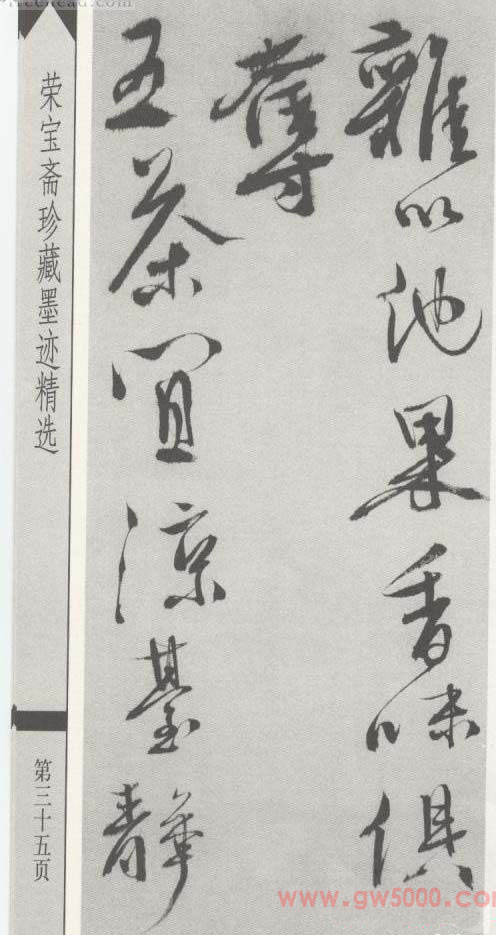 雜以他果香味俱
奪
五茶宜涼臺靜
荣宝斋珍藏墨迹精选
第三十五页
www.gw5000.com